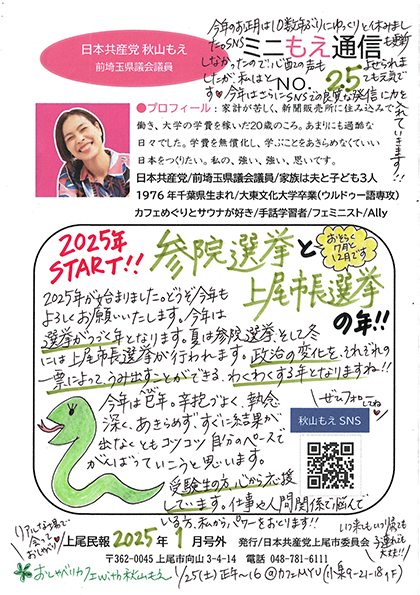 日本共産党 秋山もえ
前埼玉県議会議員
今年のお正月は10数年ぶりにゆっくりと休みまし
た。SNSも更新
しなかったので、心配の声もよせられま
したが、私はとても元気で
す♡今年はさらにSNSでの良質な発信に力を
入れていきます!!
ミニもえ通信
NO. 25
●プロフィール：家計が苦しく、新聞販売所に住み込みで
働き、大学の学費を稼いだ20歳のころ。あまりにも過酷な
日々でした。学費を無償化し、学ぶことをあきらめなくていい
日本をつくりたい。私の、強い、強い、思いです。
日本共産党/前埼玉県議会議員/家族は夫と子ども3人
1976年千葉県生まれ/大東文化大学卒業(ウルドゥー語専攻)
カフェめぐりとサウナが好き/手話学習者/フェミニスト/Ally
2025年
START!!
参院選挙と
おそらく
7月と
12月です
上尾市長選挙
の年!!
2025年が始まりました。どうぞ今年も
よろしくお願いいたします。今年は
選挙がつづく年となります。夏は参院選挙、そして冬
には上尾市長選挙が行われます。政治の変化を、それぞれの
一票によって、うみ出すことができる、わくわくする年となりますね!!
今年は巳年。辛抱づよく、執念
深く、あきらめず、すぐに結果が
出なくともコツコツ自分のペースで
がんばっていこうと思います。
受験生の方、心から応援
しています。仕事や人間関係で悩んで
いる方、私からパワーをおくります!!
ぜひフォロー
してね♡
秋山もえ SNS
リアルでも
会って
おしゃべり
上尾民報 2025年 1月号外 発行/日本共産党上尾市委員会
〒362-0045 上尾市向山3-4-14 電話 048-781-6111
おしゃべりカフェwith秋山もえ 1/25(土)正午〜16 @カフェMYU(小泉9-21-18 1F)